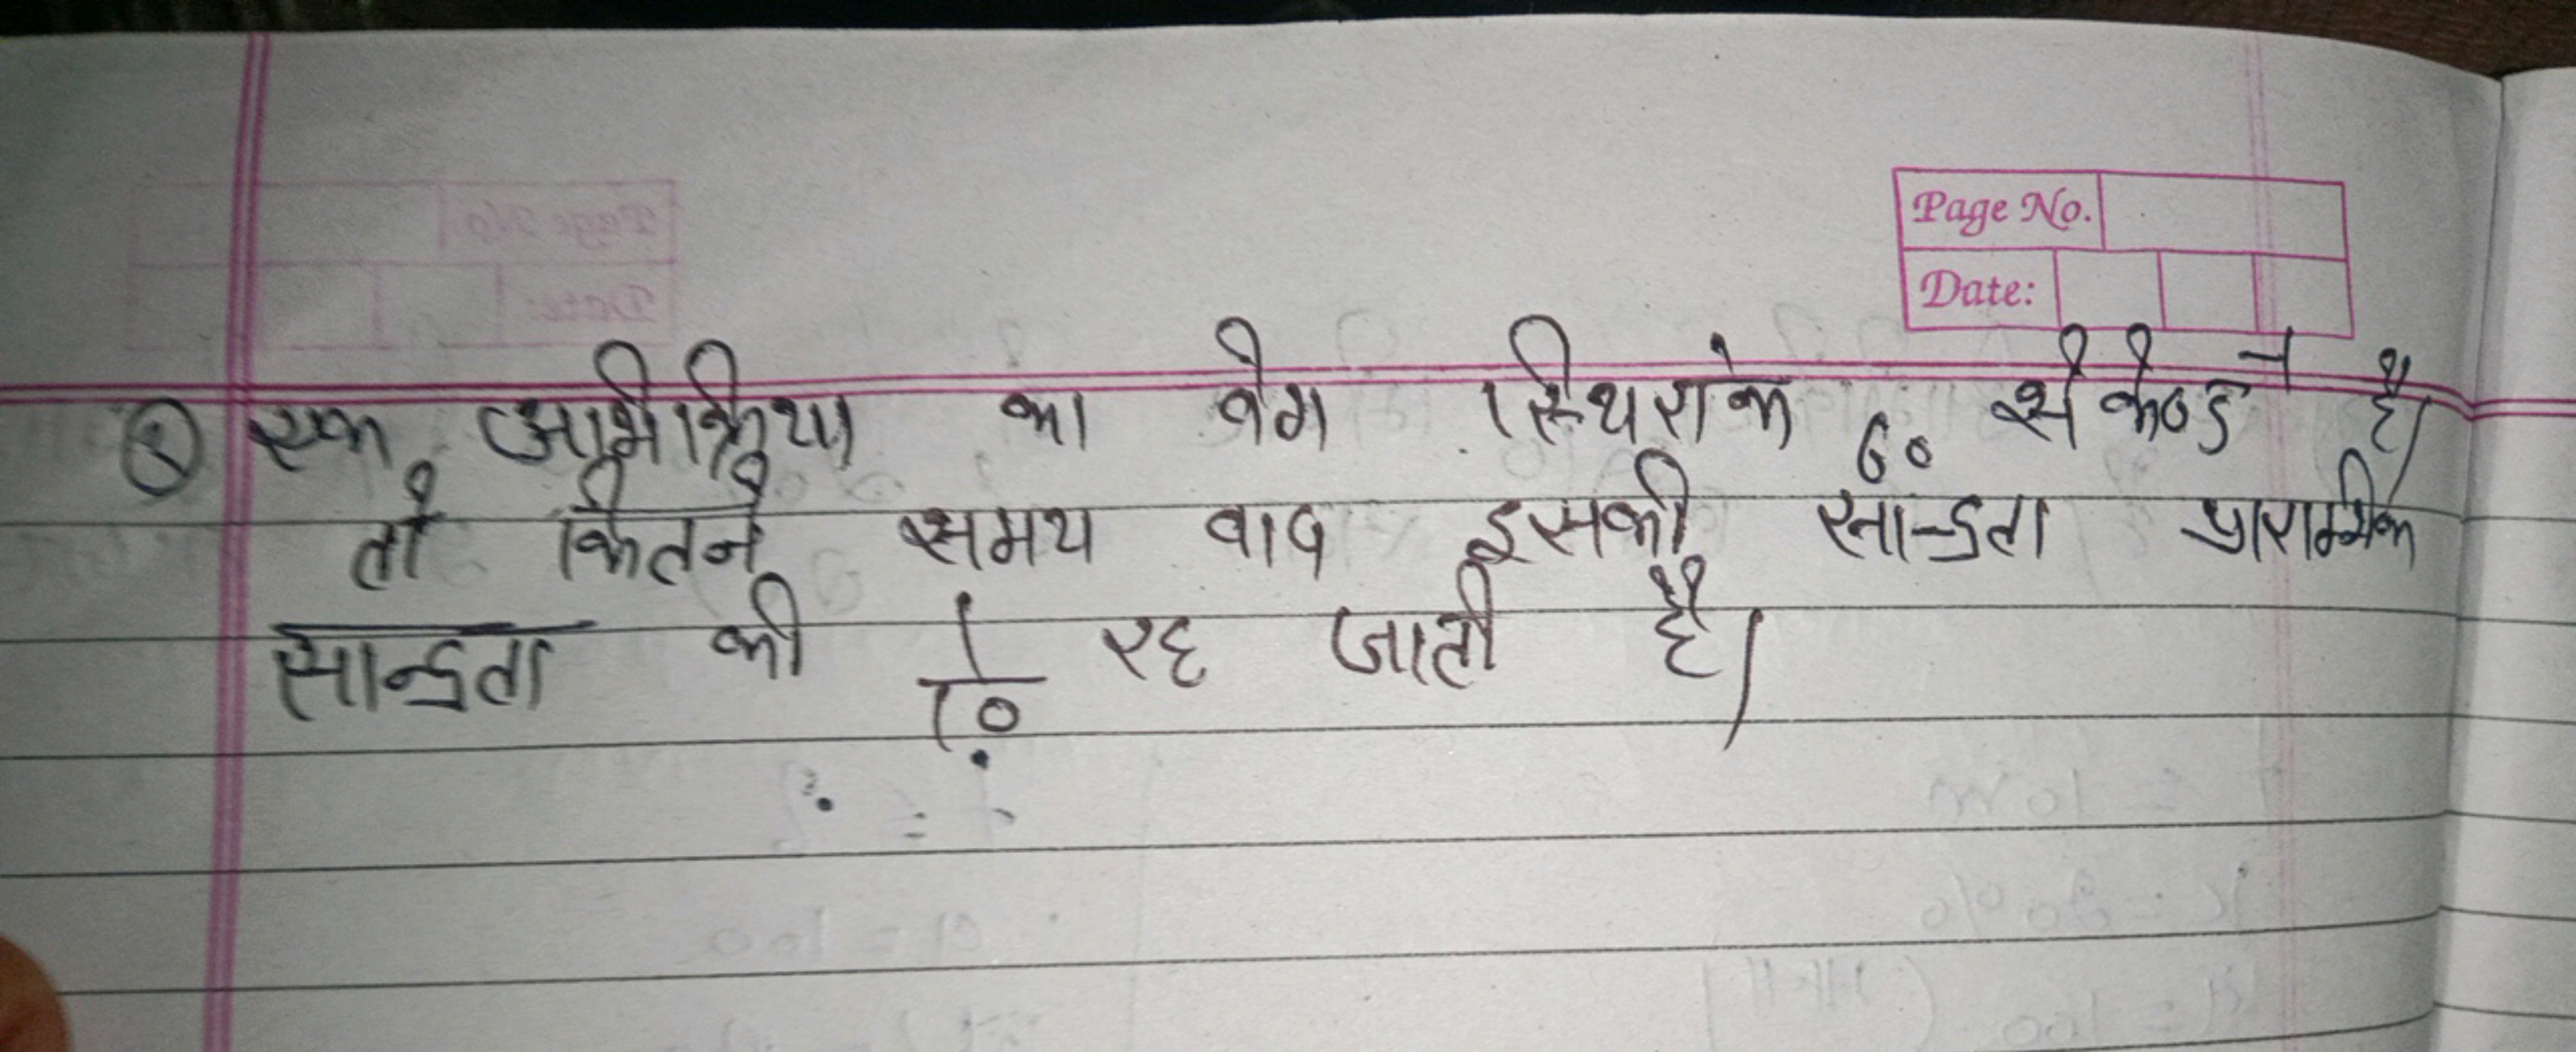 Page No.
Date:
① एक अभिक्रिया का वेग स्थिरांक 60 सेकेण्ड⁻¹ है।
तो कितने समय बाद इसकी सान्द्रता प्रारम्भिक
सान्द्रता की 1/10 रह जाती है।